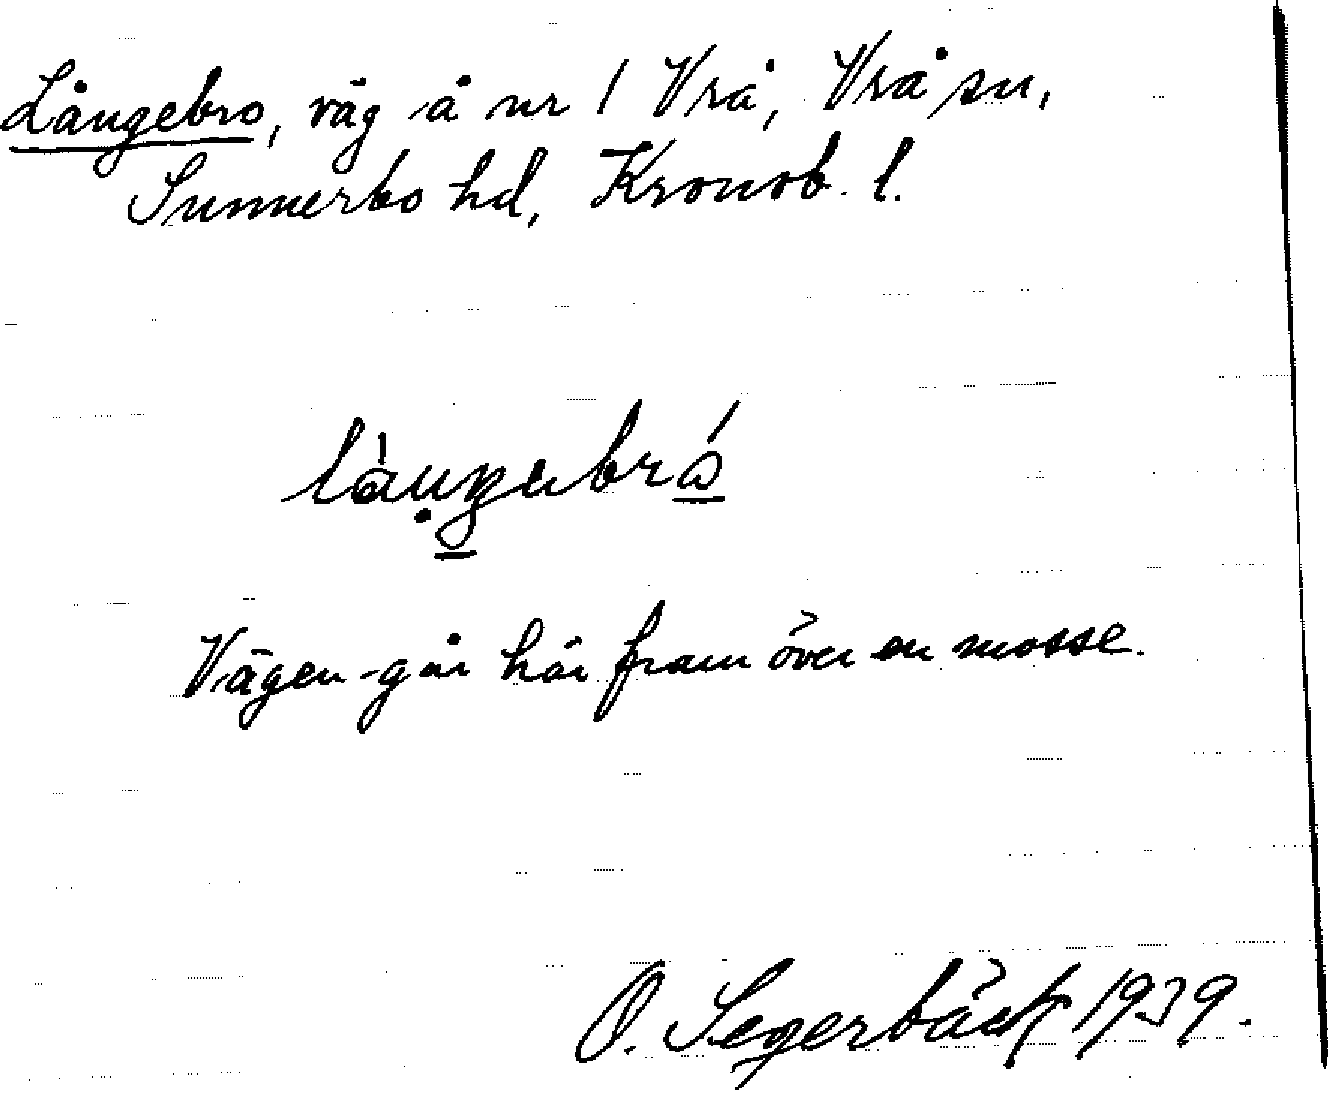 Långebro, väg å nr 1 Vrå, Vrå sn,
Sunnerbo hd, Kronob. l.
Vägen går här fram över en mosse.
O. Segerbäck 1939.